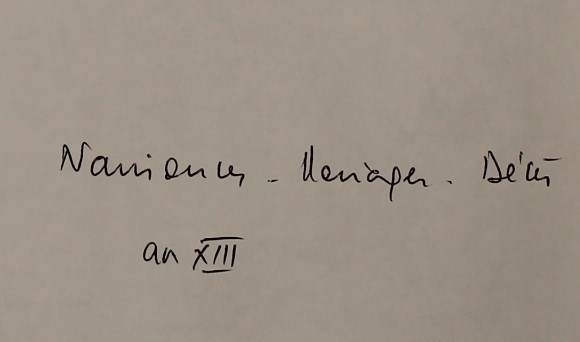 Naissances - Mariages - Décès
an XIII